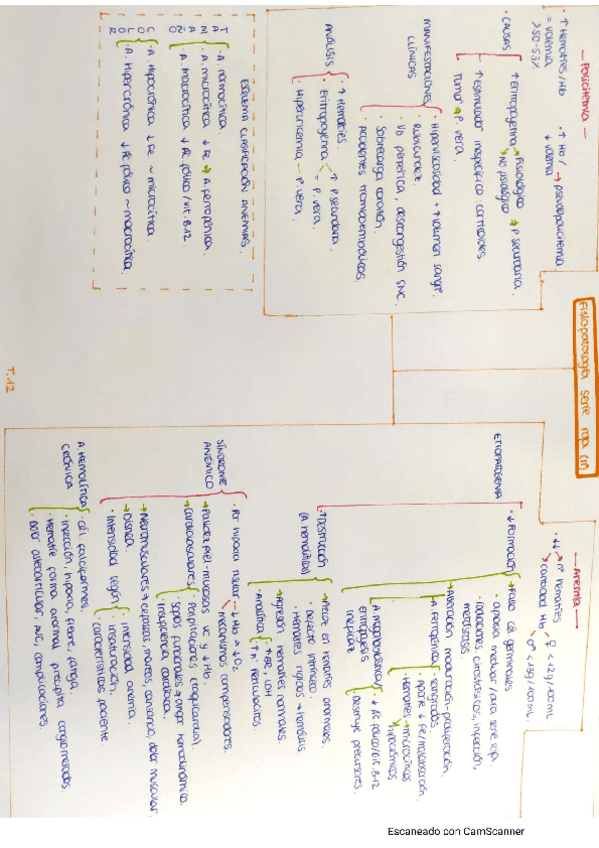 Fisiopatología serie roja (II)
Policitemia
· ↑ Hematíes/Hb
= volemia
>50-53%
· ↑ Hb / ↓ volemia → pseudopolicitemia
· CAUSAS
↑ Eritropoyetina → Fisiológico → P. secundaria.
No fisiológico
↑ Estimulador inespecífico: corticoides.
Tumor → P. vera.
MANIFESTACIONES CLÍNICAS
· Hiperviscosidad + ↑ volumen sangre.
· Rubicundez.
· VD periférica, descongestión SNC.
· Sobrecarga corazón.
· Accidentes tromboembólicos.
ANÁLISIS
· ↑ Hematíes.
· Eritropoyetina
↑ P. secundaria.
P. vera.
· Hiperuricemia – P. vera.
ESQUEMA CLASIFICACIÓN ANEMIAS.
TAMAÑO
· A. normocítica.
· A. microcítica ↓ Fe → A. ferropénica.
· A. macrocítica ↓ Ác. fólico/vit. B-12
COLOR
· A. Hipocrómica ↓ Fe ~ microcítica.
· A. Hipercrómica ↓ Ác. fólico ~ macrocítica.
Anemia
· ↓↓ nº hematíes
cantidad Hb
♀ <12g/100mL
♂ <13g/100mL.
ETIOPATOGENIA
· ↓ Formación
→ Fallo cél. germinales
· aplasia medular/pura serie roja.
· radiaciones, citostáticos, infección,
metástasis.
→ Alteración maduración-proliferación.
· A. ferropénica
· sangrados
· Aporte ↓ Fe/malabsorción.
· Hematíes
microcíticos
hipocrómicos
· A. megaloblástica
eritropoyesis ineficaz
· ↓ Ác. fólico/vit. B-12
· Destruye precursores.
· ↑ Destrucción
(A. hemolítica)
→ Afecta a hematíes anormales.
· defecto intrínseco.
· Hematíes rígidos → hemólisis.
→ Agresión hematíes normales.
· Analítica
· ↑ BR, LDH
· ↑ nº Reticulocitos.
SÍNDROME ANÉMICO
· Por hipoxia tisular
↓ Hb → ↓ O₂
mecanismos compensadores.
→ Palidez piel-mucosas VC y ↓ Hb.
→ Cardiovasculares
· Palpitaciones (taquicardia).
· Soplos funcionales → mayor hemodinámica.
· Insuficiencia cardíaca.
→ Neuromusculares → cefalea, mareos, cansancio, dolor muscular.
→ Disnea.
· Intensidad según
· intensidad anemia.
· instauración.
· características paciente
A. HEMOLÍTICA CRÓNICA
· Cél. falciformes.
· infección, hipoxia, fiebre, fatiga.
· Hematíe forma anormal precipita conglomerados.
· Dolor osteoarticular, complicaciones.
T.12
Escaneado con CamScanner